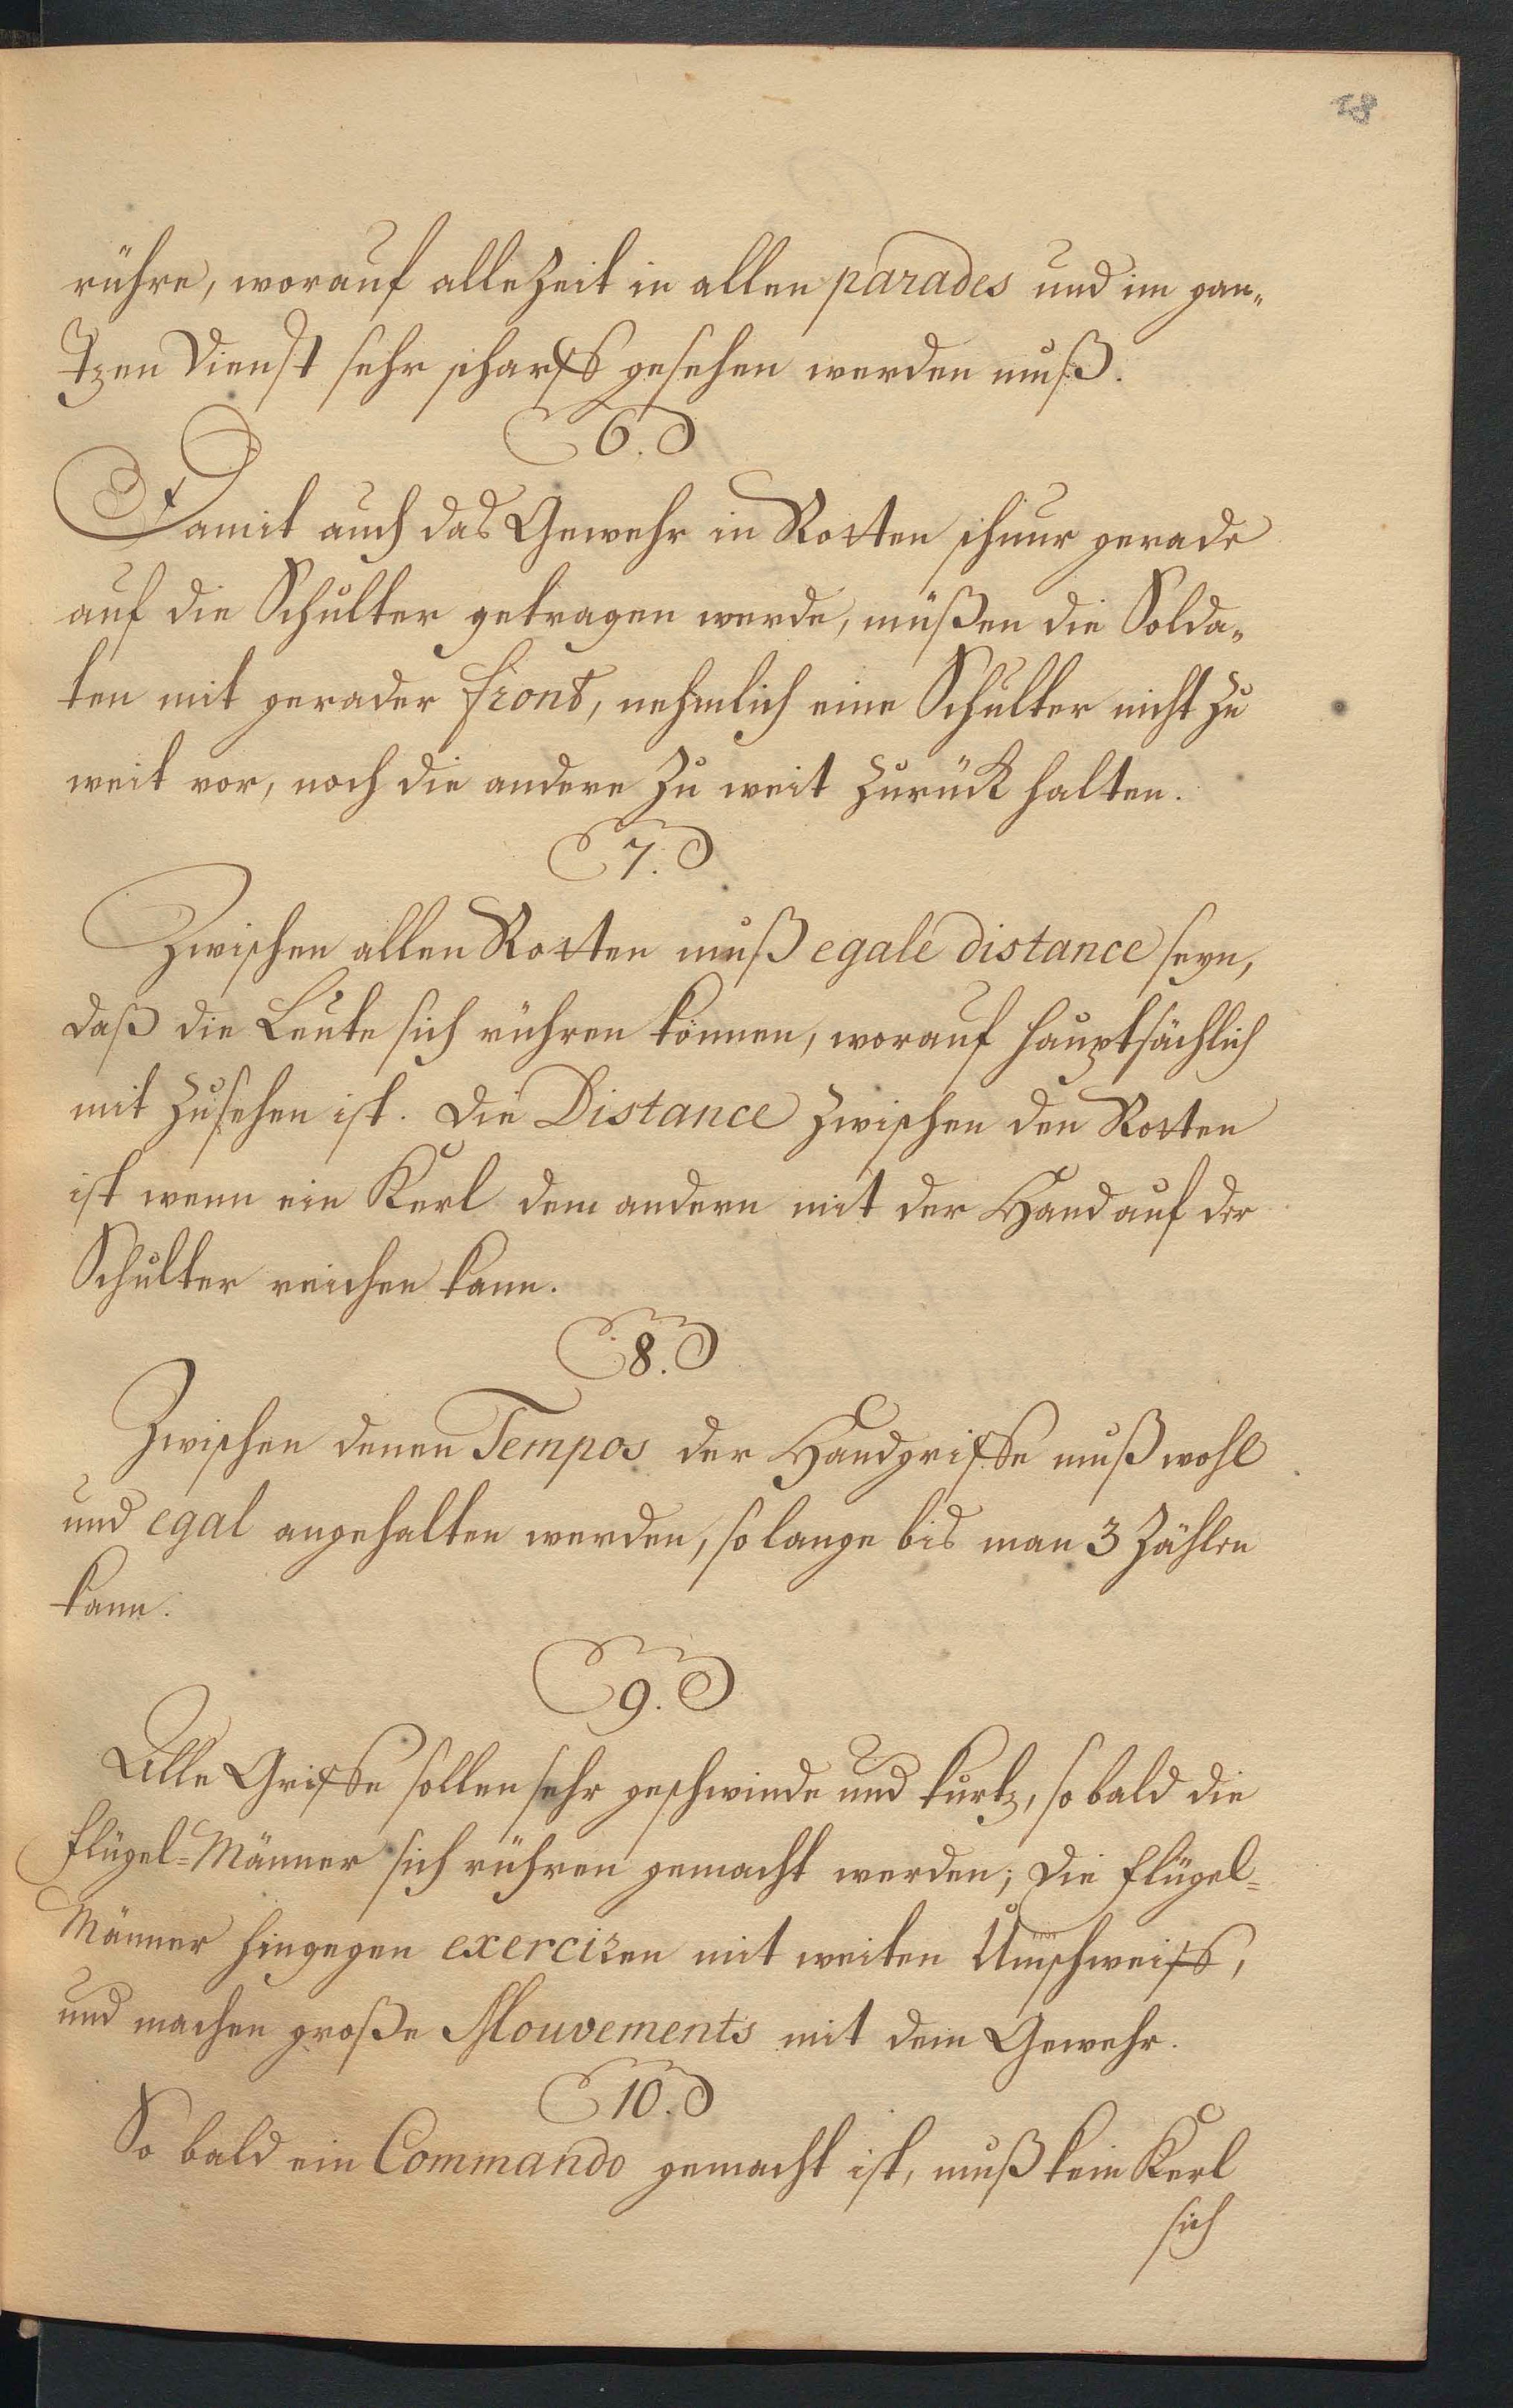 18
rühre, worauf alle Zeit in allen parades und im gan„
tzen Dienst sehr scharff gesehen werden muß.
6.
Damit auch das Gewehr in Rotten schnur gerade
auf die Schulter getragen werde, müßen die Solda„
ten mit gerader front, nehmlich eine Schulter nicht zu
weit vor, noch die andere zu weit zurück halten.
7.
Zwischen allen Rotten muß egale distance seyn,
daß die Leute sich rühren können, worauf hauptsächlich
mit zusehen ist. Die Distance zwischen den Rotten
ist wenn ein Kerl dem andern mit der Hand auf der
Schulter reichen kann.
8.
Zwischen denen Tempos der Handgriffe muß wohl
und egal angehalten werden, so lange bis man 3 zählen
kann.
9.
Alle Griffe sollen sehr geschwinde und kurtz, so bald die
Flügel=Männer sich rühren gemacht werden; Die Flügel=
Männer hingegen exerciren mit weiten Umschweiff,
und machen große Mouvements mit dem Gewehr.
10.
So bald ein Commando gemacht ist, muß kein Kerl
sich